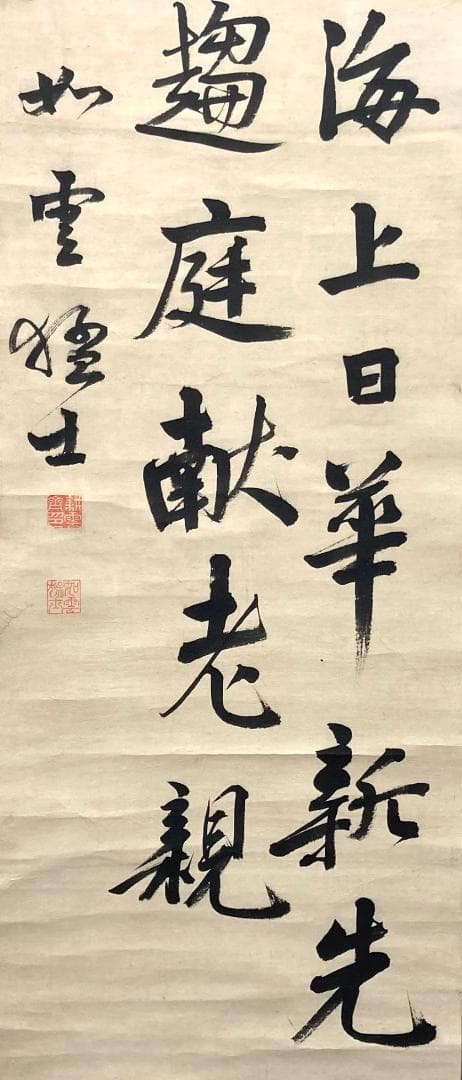 海上日華新先
趨庭献老親
如雲猛士